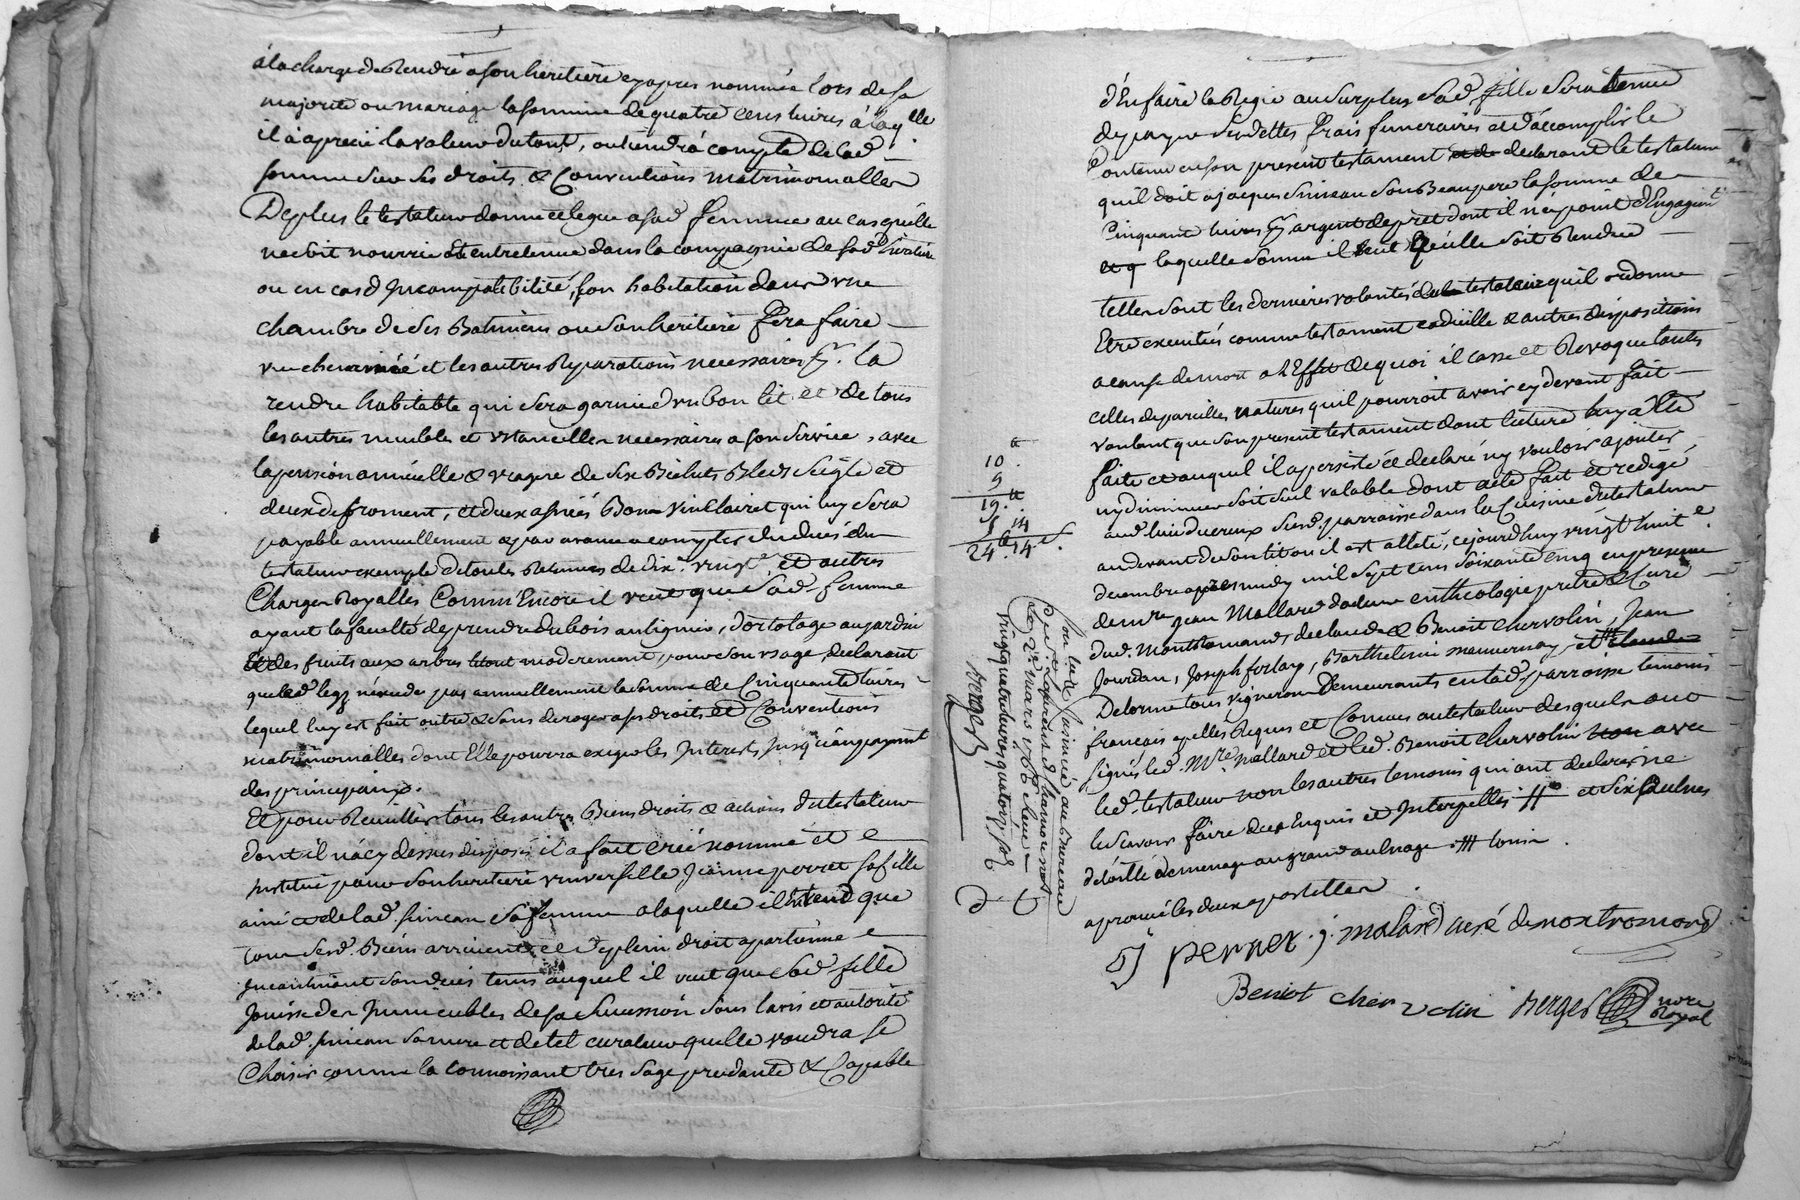 à la charge de Rendre a son heritiere cy apres nommée lors de sa
majorité ou mariage la somme de quatre cens livres à laqlle
il à aprecié la valeur du tout, ou tiendra compte de lad.
somme sur ses droits & Conventions matrimonialles
De plus le testateur donne et legue a sad. femme au cas qu'elle
ne soit nourrie et entretenue dans la compagnie de sad. heritiere
ou en cas d'Incompatibilité, son habitation dans une
chambre de ses Batimens ou son heritiere fera faire
une cheminéé et les autres Reparations necessaires pr. la
rendre habitable qui sera garnie d'un bon lit et de tous
les autres meubles et ustancilles necessaires a son service, avec
la pension annuelle & viagere de six Bichets Bled seigle et
deux de froment, et deux asnéés Bon vin clairet qui luy sera
payable annuellement et par avance a compter du decés du
testateur exempte de toutes Retenues de dixe. vingte. et autres
Charges Royalles Comm'Encore il veut que sad. femme
ayant la faculté de prendre du bois au lignier, d'ortolage au jardin
et des fruits aux arbres le tout moderement pour son usage, declarant
que led. legs n'excede pas annuellement la somme de Cinquante livres
lequel luy est fait outre & sans deroger a ses droits et Conventions
matrimonialles dont Elle pourra exiger les Interests jusqu'au payement
des principaux.
Et pour Reuillir tous les autres Biens droits & actions du testateur
dont il n'a cy dessus disposé il a fait créé nommé et
institué pour son heritiere universelle Jeanne perret sa fille
ainée et de lad. sa femme a laquelle il Entend que
tous sesd. Biens arrivent et de plein droit apartienne
Incontinant son decés tems auquel il veut que sad. fille
Jouisse des Immeubles de sa succession sous l'avis et autorité
de lad. sa mere et de tel curateur quelle voudra se
Choisir comme la connoissant tres sage prudante & Capable
d'En faire la Regie au surplus sad. fille sera tenue
de payer ses dettes frais funeraires et d'accomplir le
Contenu en son present testament declarant le testateur
qu'il doit a jacques son Beaupere la somme de
Cinquante livres pr argent de pret dont il n'a point d'Engagemt
laquelle somme il veut qu'elle soit Rendue
telles sont les dernieres volontés du testateur qu'il ordonne
Etre executés comme testament codicille & autres dispositions
a cause de mort a l'Effet de quoi il casse et Revoque toutes
celles de pareilles natures qu'il pourroit avoir cy devant fait
voulant que son present testament dont lecture luy a Eté
faite et auquel il a persisté & declaré n'y vouloir ajouter
ny diminuer soit seul valable dont acte fait et redigé
aud. lieu susd. parroisse dans la Cuisine du testateur
au devant de son lit ou il est alleté, cejourd'huy vingt huite.
decembre apres midy mil sept cens soixante cinq en presence
de mre jean Mallard docteur en theologie pretre & Curé
dud. Montromand & Benoit chervolin, Jean
Jourdan, Joseph, Barthelemi, et
Delorme tous vignerons Demeurants en lad. parroisse temoins
françois apellés Requis et Connus au testateur desquels ont
signés led. Mre Mallard et led. Benoit chervolin avec
led. testateur non les autres temoins qui ont declarés ne
le savoir faire de ce Enquis et Interpellés et six
de toille de menage
aprouvé les deux apostilles
perret . j. malard curé de montromand
Benoit chervolin Berger nore
Royal
10
9
19
5 14
24 14 s.
au bureau
de St Laurent de Chamousset
le 2e mars 1766 Reçu
vingt quatre livres quatorze sols
Berger